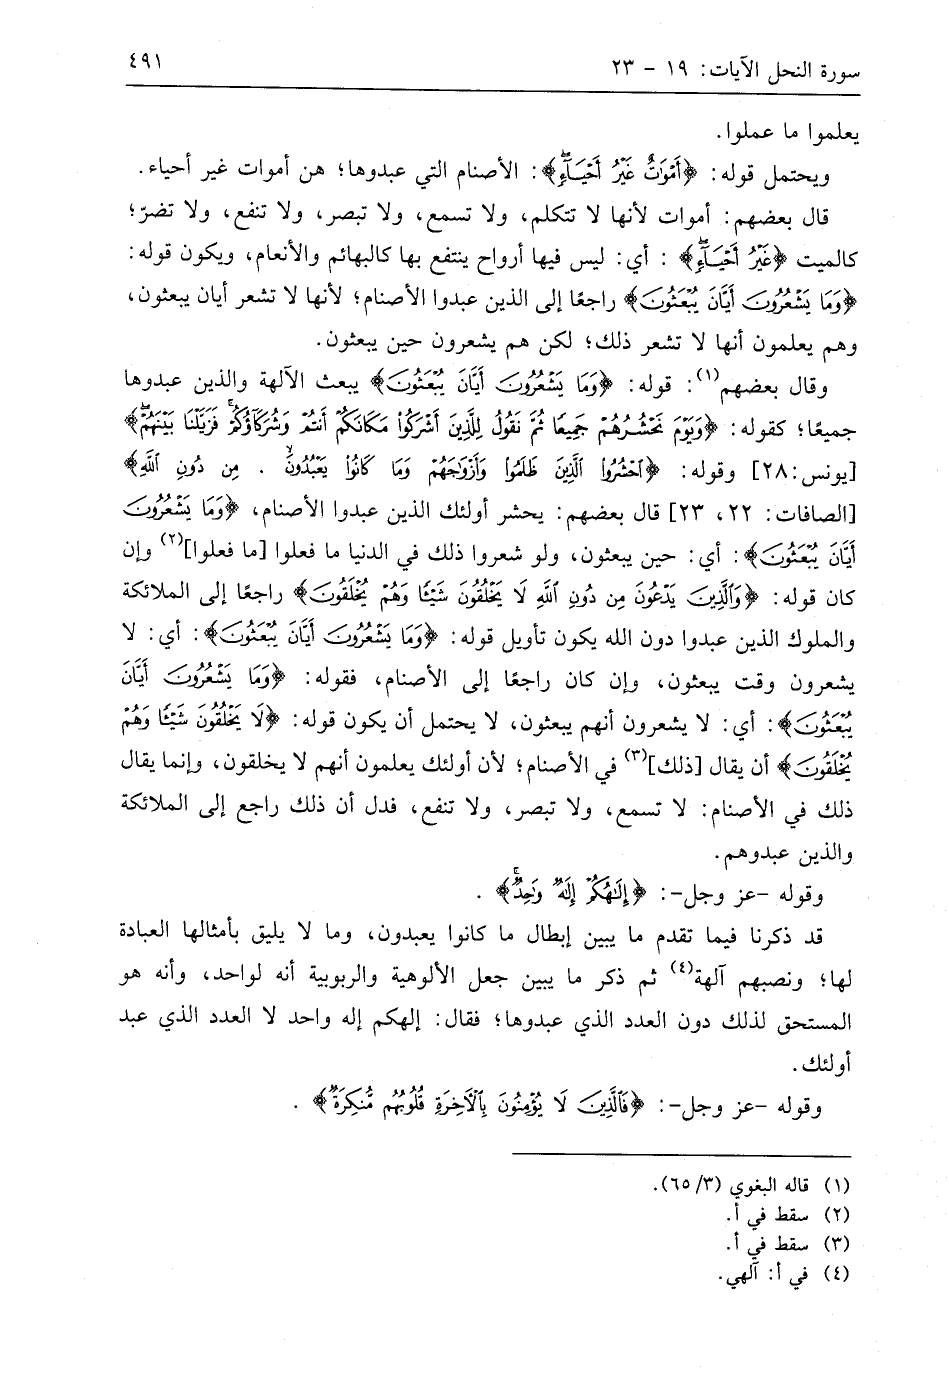 سورة النحل الآيات: ١٩ - ٢٣ ٤٩١
يعلموا ما عملوا.
ويحتمل قوله: ﴿أَمْوَٰتٌ غَيْرُ أَحْيَآءٍ﴾: الأصنام التي عبدوها؛ هن أموات غير أحياء.
قال بعضهم: أموات لأنها لا تتكلم، ولا تسمع، ولا تبصر، ولا تنفع، ولا تضرّ؛
كالميت ﴿غَيْرُ أَحْيَآءٍ﴾ : أي: ليس فيها أرواح ينتفع بها كالبهائم والأنعام، ويكون قوله:
﴿وَمَا يَشْعُرُونَ أَيَّانَ يُبْعَثُونَ﴾ راجعًا إلى الذين عبدوا الأصنام؛ لأنها لا تشعر أيان يبعثون،
وهم يعلمون أنها لا تشعر ذلك؛ لكن هم يشعرون حين يبعثون.
وقال بعضهم(١): قوله: ﴿وَمَا يَشْعُرُونَ أَيَّانَ يُبْعَثُونَ﴾ يبعث الآلهة والذين عبدوها
جميعًا؛ كقوله: ﴿وَيَوْمَ نَحْشُرُهُمْ جَمِيعًا ثُمَّ نَقُولُ لِلَّذِينَ أَشْرَكُوا۟ مَكَانَكُمْ أَنتُمْ وَشُرَكَآؤُكُمْ فَزَيَّلْنَا بَيْنَهُمْ﴾
[يونس:٢٨] وقوله: ﴿ٱحْشُرُوا۟ ٱلَّذِينَ ظَلَمُوا۟ وَأَزْوَٰجَهُمْ وَمَا كَانُوا۟ يَعْبُدُونَ . مِن دُونِ ٱللَّهِ﴾
[الصافات: ٢٢، ٢٣] قال بعضهم: يحشر أولئك الذين عبدوا الأصنام، ﴿وَمَا يَشْعُرُونَ
أَيَّانَ يُبْعَثُونَ﴾: أي: حين يبعثون، ولو شعروا ذلك في الدنيا ما فعلوا [ما فعلوا](٢) وإن
كان قوله: ﴿وَٱلَّذِينَ يَدْعُونَ مِن دُونِ ٱللَّهِ لَا يَخْلُقُونَ شَيْـًٔا وَهُمْ يُخْلَقُونَ﴾ راجعًا إلى الملائكة
والملوك الذين عبدوا دون الله يكون تأويل قوله: ﴿وَمَا يَشْعُرُونَ أَيَّانَ يُبْعَثُونَ﴾: أي: لا
يشعرون وقت يبعثون، وإن كان راجعًا إلى الأصنام، فقوله: ﴿وَمَا يَشْعُرُونَ أَيَّانَ
يُبْعَثُونَ﴾: أي: لا يشعرون أنهم يبعثون، لا يحتمل أن يكون قوله: ﴿لَا يَخْلُقُونَ شَيْـًٔا وَهُمْ
يُخْلَقُونَ﴾ أن يقال [ذلك](٣) في الأصنام؛ لأن أولئك يعلمون أنهم لا يخلقون، وإنما يقال
ذلك في الأصنام: لا تسمع، ولا تبصر، ولا تنفع، فدل أن ذلك راجع إلى الملائكة
والذين عبدوهم.
وقوله -عز وجل-: ﴿إِلَٰهُكُمْ إِلَٰهٌ وَٰحِدٌ﴾ .
قد ذكرنا فيما تقدم ما يبين إبطال ما كانوا يعبدون، وما لا يليق بأمثالها العبادة
لها؛ ونصبهم آلهة(٤) ثم ذكر ما يبين جعل الألوهية والربوبية أنه لواحد، وأنه هو
المستحق لذلك دون العدد الذي عبدوها؛ فقال: إلهكم إله واحد لا العدد الذي عبد
أولئك.
وقوله -عز وجل-: ﴿فَٱلَّذِينَ لَا يُؤْمِنُونَ بِٱلْآخِرَةِ قُلُوبُهُم مُّنكِرَةٌ﴾ .
(١) قاله البغوي (٣/ ٦٥).
(٢) سقط في أ.
(٣) سقط في أ.
(٤) في أ: آلهي.